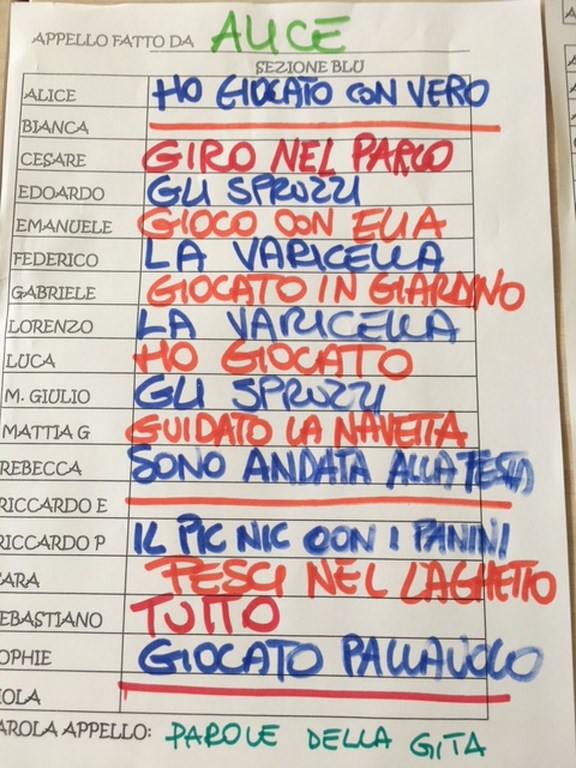 APPELLO FATTO DA ALICE
SEZIONE BLU
ALICE HO GIOCATO CON VERO
BIANCA
CESARE GIRO NEL PARCO
EDOARDO GLI SPRUZZI
EMANUELE GIOCO CON ELIA
FEDERICO LA VARICELLA
GABRIELE GIOCATO IN GIARDINO
LORENZO LA VARICELLA
LUCA HO GIOCATO
M. GIULIO GLI SPRUZZI
MATTIA G GUIDATO LA NAVETTA
REBECCA SONO ANDATA ALLA TESTA
RICCARDO E
RICCARDO P IL PIC NIC CON I PANINI
ARA PESCI NEL LAGHETTO
EBASTIANO TUTTO
OPHIE GIOCATO PALLAVOLO
IOLA
AROLA APPELLO: PAROLE DELLA GITA